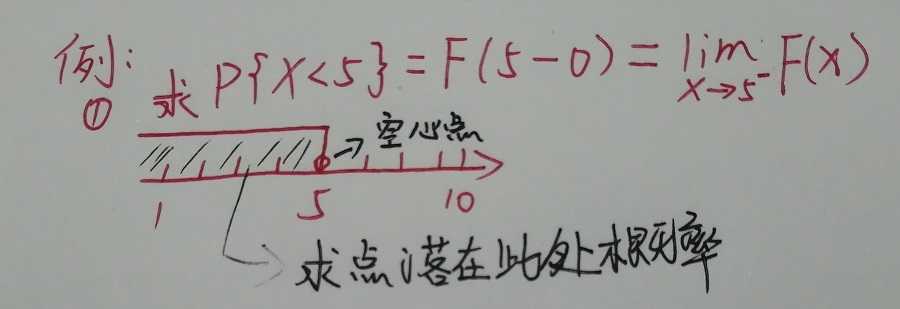 例:
① 求 P{X<5}=F(5-0)=lim F(x)
x→5⁻
→空心点
1 5 10
求点落在此处概率